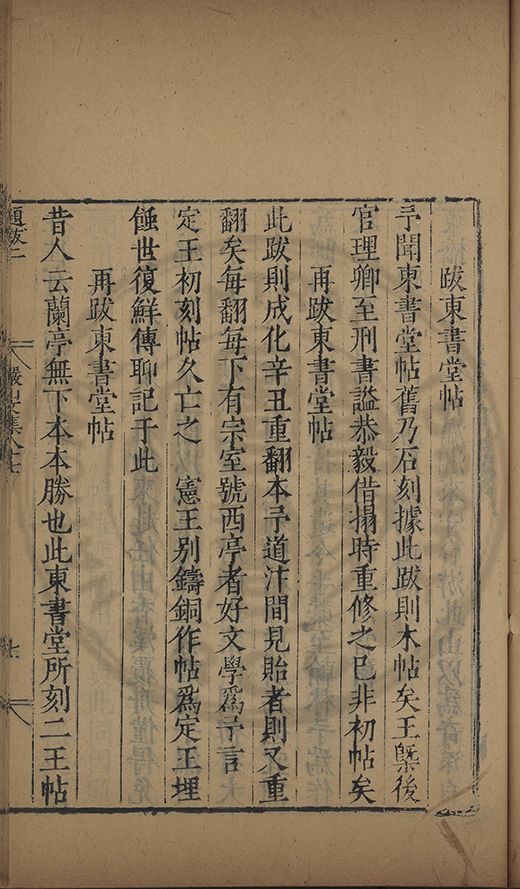 跋東書堂帖
予聞東書堂帖舊乃石刻據此跋則木帖矣王槩後
官理卿至刑書謚恭毅借搨時重修之已非初帖矣
再跋東書堂帖
此跋則成化辛丑重翻本予道汴間見貽者則又重
翻矣每翻每下有宗室號西亭者好文學爲予言
定王初刻帖久亡之 憲王別鑄銅作帖爲定王埋
蝕世復鮮傳聊記于此
再跋東書堂帖
昔人云蘭亭無下本本勝也此東書堂所刻二王帖
題跋二
七